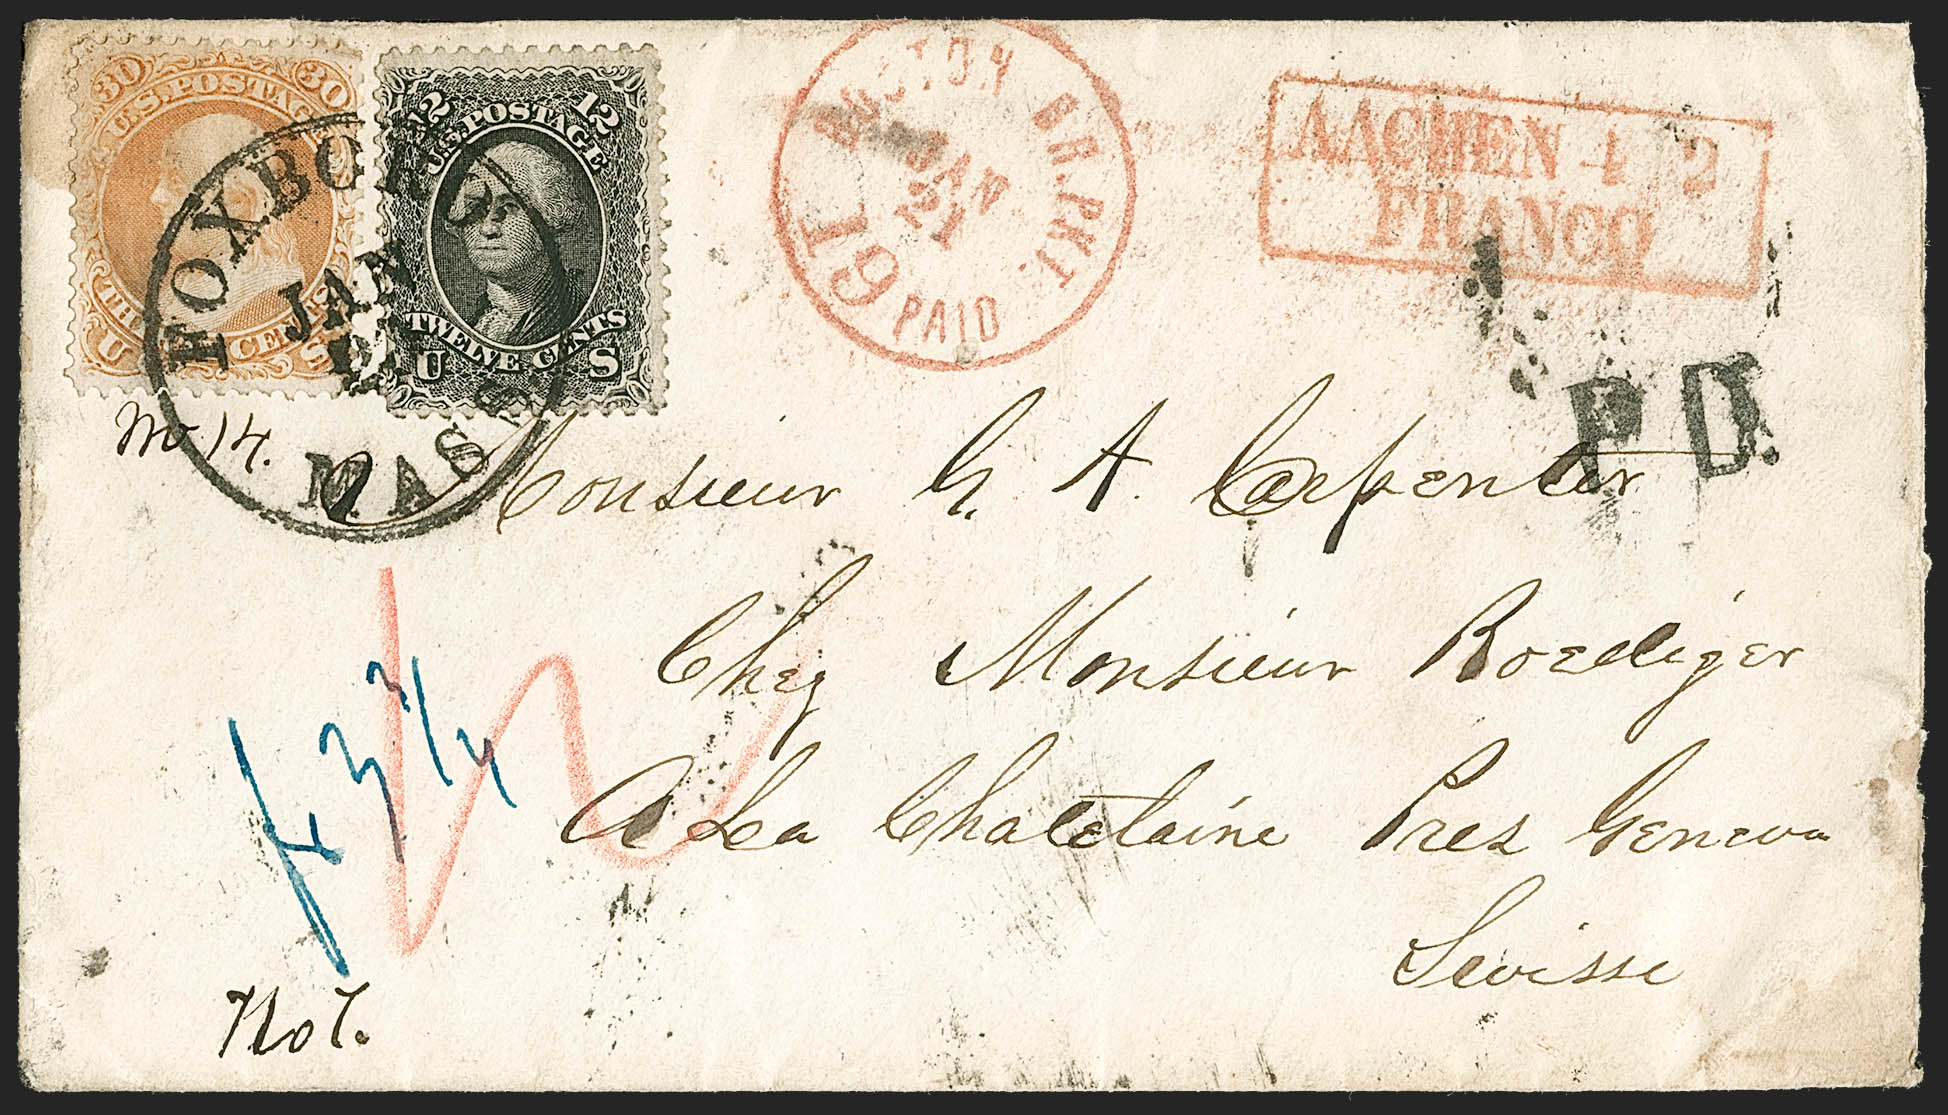 30 30
U.S. POSTAGE
CENTS
U S
12 12
U.S. POSTAGE
TWELVE CENTS
U S
FOXBORO
JAN
MASS
BOSTON BR. PKT.
JAN
21
19 PAID
AACHEN 4 2
FRANCO
P D.
No 14.
Monsieur G. A. Carpenter
Chez Monsieur Roediger
A La Chatelaine Pres Geneva
Suisse
f 3 3/4
No 7.